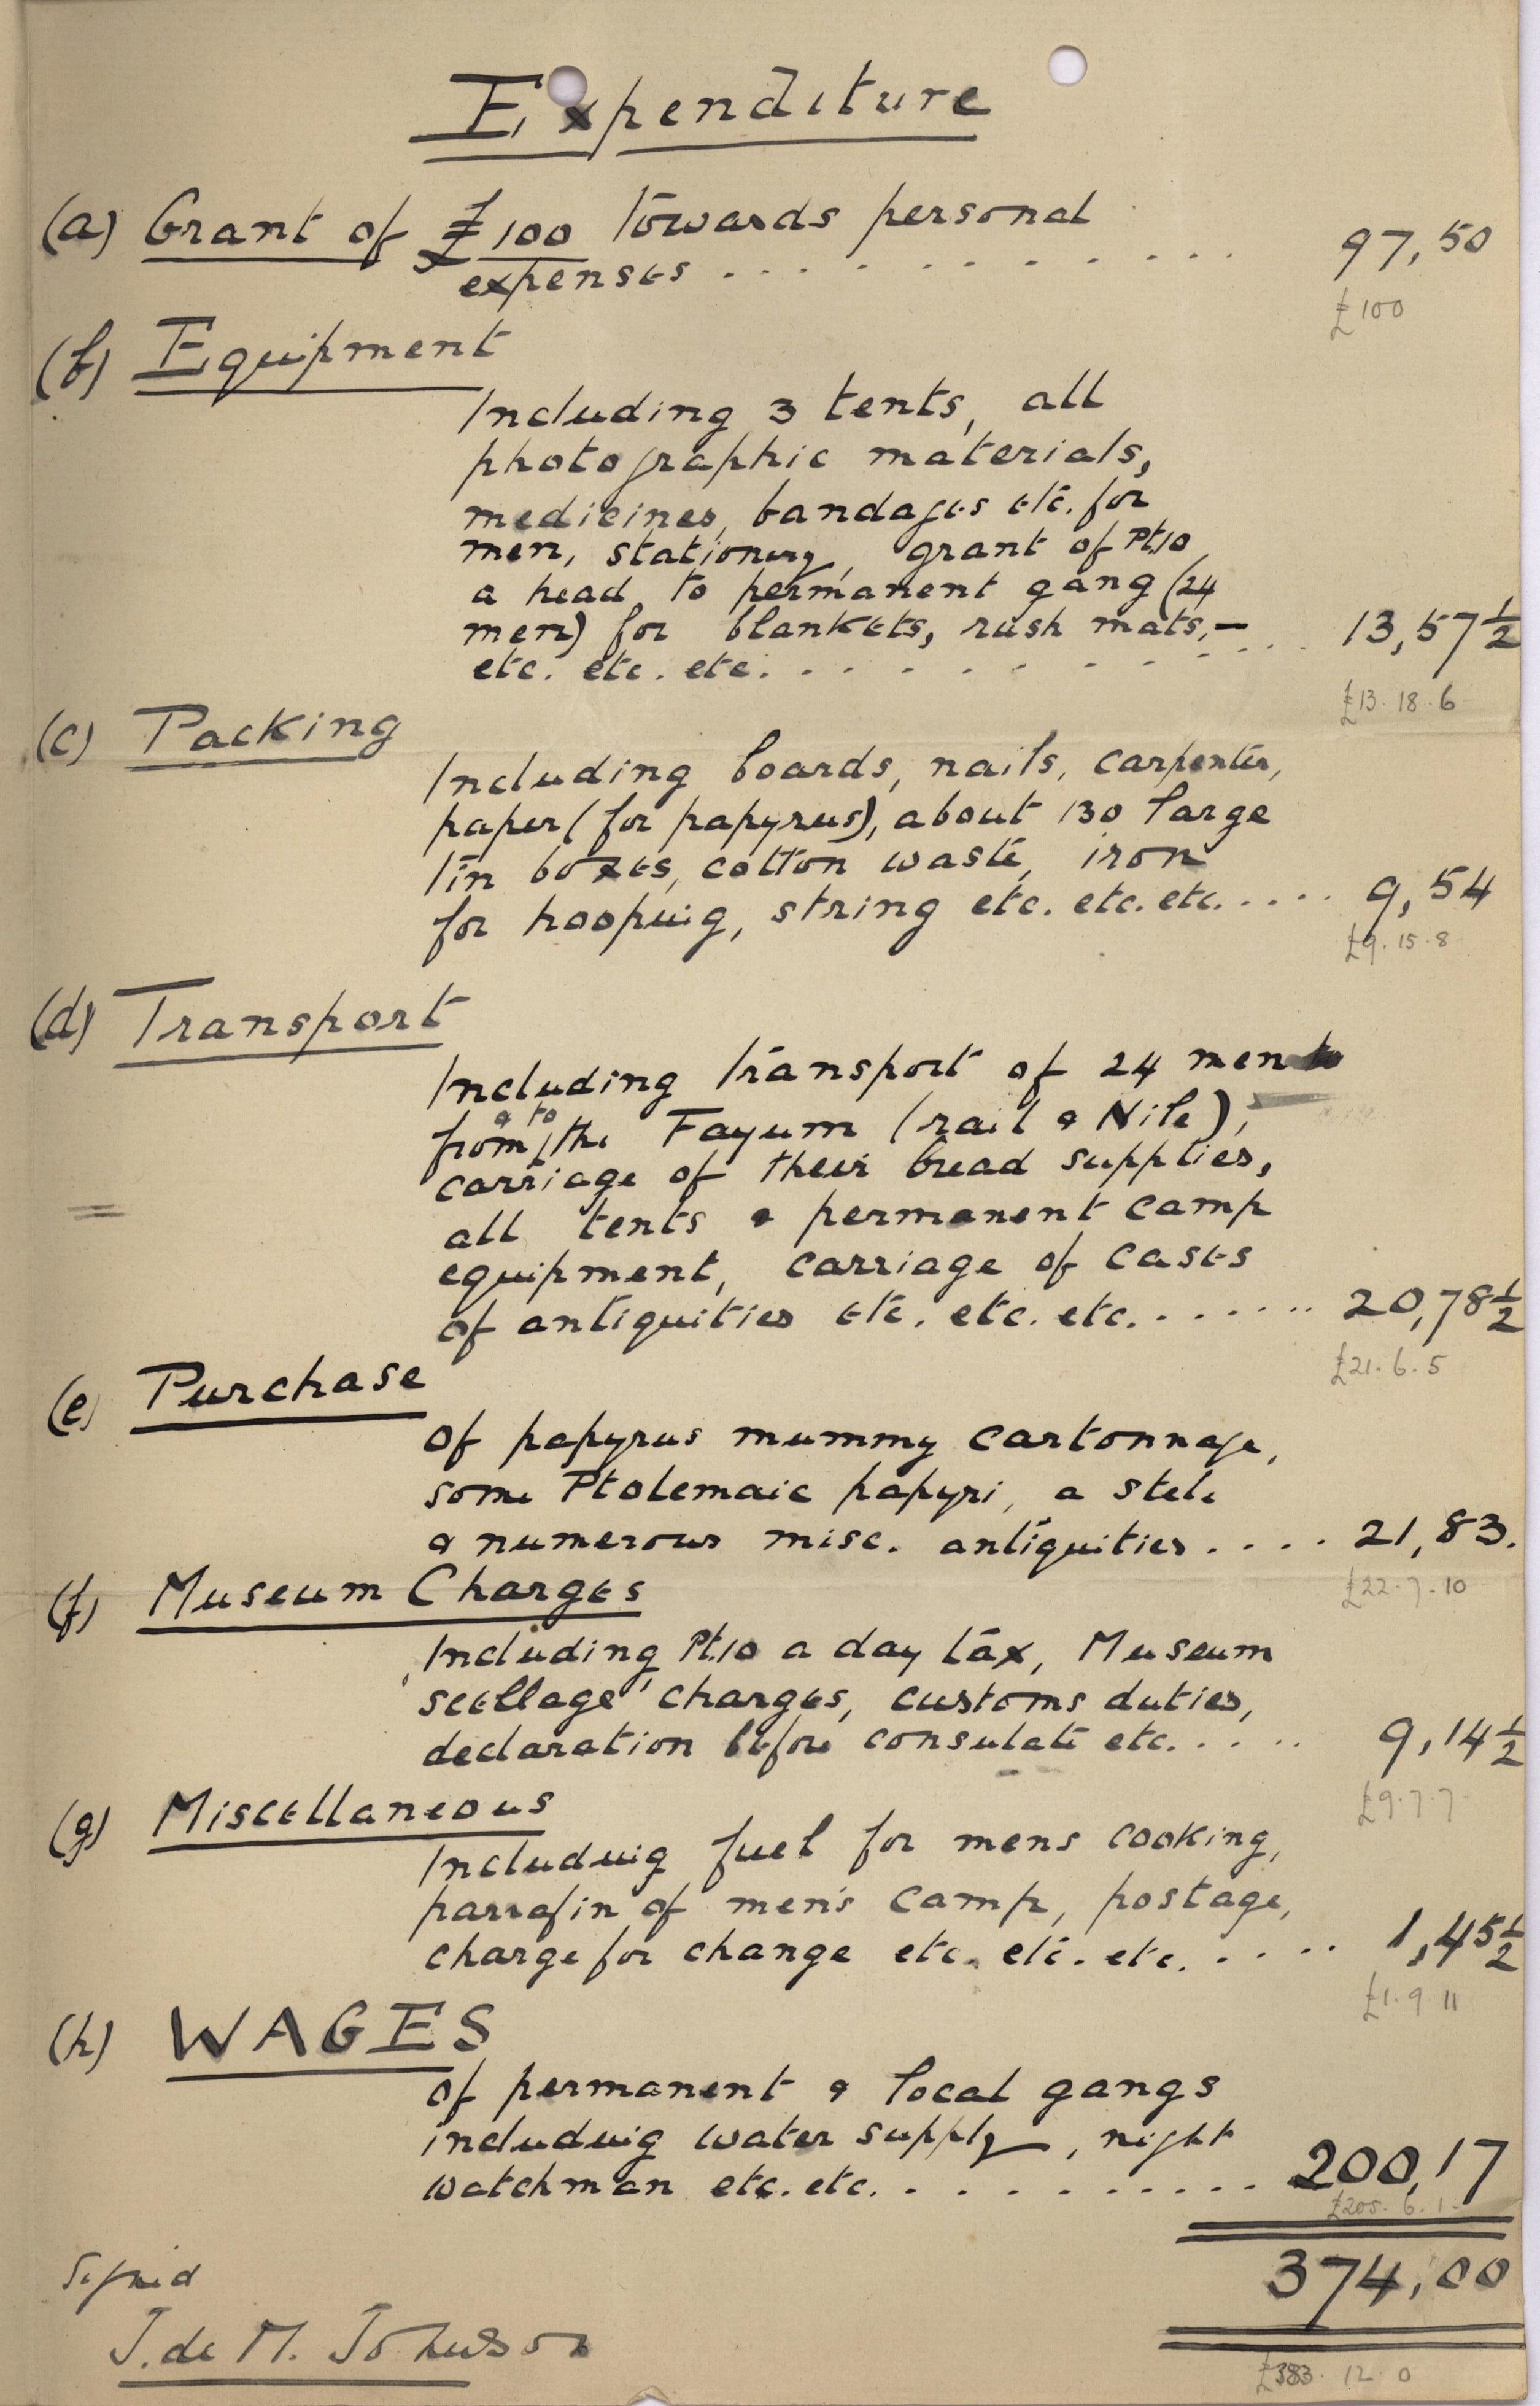 Expenditure
(a) Grant of £100 towards personal
expenses . . . . . . . . . . . 97,50
£100
(b) Equipment
Including 3 tents, all
photographic materials,
medicines, bandages etc. for
men, stationery, grant of Pt.10
a head to permanent gang (24
men) for blankets, rush mats,—
etc. etc. etc. . . . . . . . . . . 13,57½
£13.18.6
(c) Packing
Including boards, nails, carpenter,
paper (for papyrus), about 130 large
tin boxes, cotton waste, iron
for hooping, string etc. etc. etc. . . . . 9,54
£9.15.8
(d) Transport
Including transport of 24 men
from & to the Fayum (rail & Nile),
carriage of their bread supplies,
all tents & permanent camp
equipment, carriage of cases
of antiquities etc. etc. etc. . . . . . . 20,78½
£21.6.5
(e) Purchase
of papyrus mummy cartonnage,
some Ptolemaic papyri, a stele
& numerous misc. antiquities . . . . 21,83.
£22.7.10
(f) Museum Charges
Including Pt.10 a day tax, Museum
'scellage' charges, customs duties,
declaration before consulate etc. . . . . 9,14½
£9.7.7
(g) Miscellaneous
Including fuel for mens cooking,
parrafin of men's camp, postage,
charge for change etc. etc. etc. . . . . 1,45½
£1.9.11
(h) WAGES
of permanent & local gangs
including water supply, night
watchman etc. etc. . . . . . . . . . 200,17
£205.6.1
374,00
Signed
J. de M. Johnson
£383.12.0